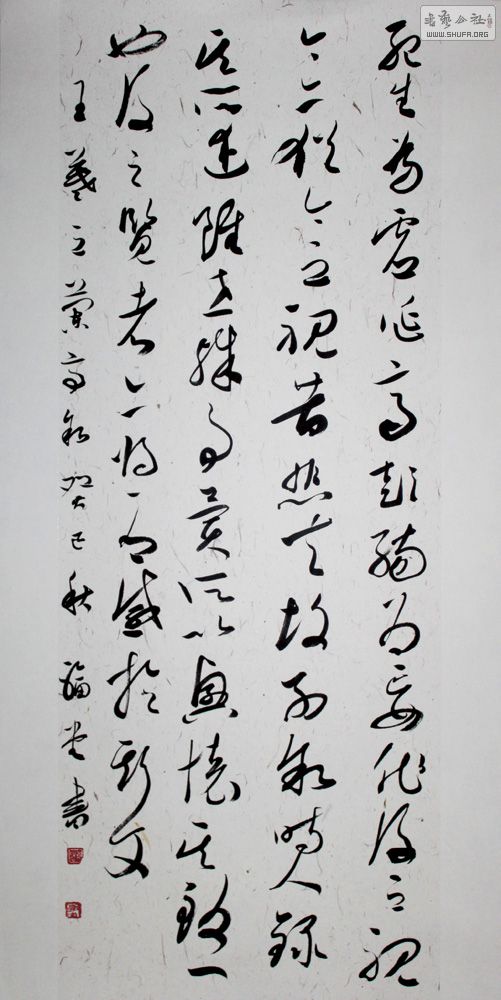 书艺公社
WWW.SHUFA.ORG
死生為虛誕齊彭殤為妄作後之視
今亦猶今之視昔悲夫故列敘時人錄
其所述雖世殊事異所以興懷其致一
也後之覽者亦將有感於斯文
王羲之蘭亭敘癸巳秋 書